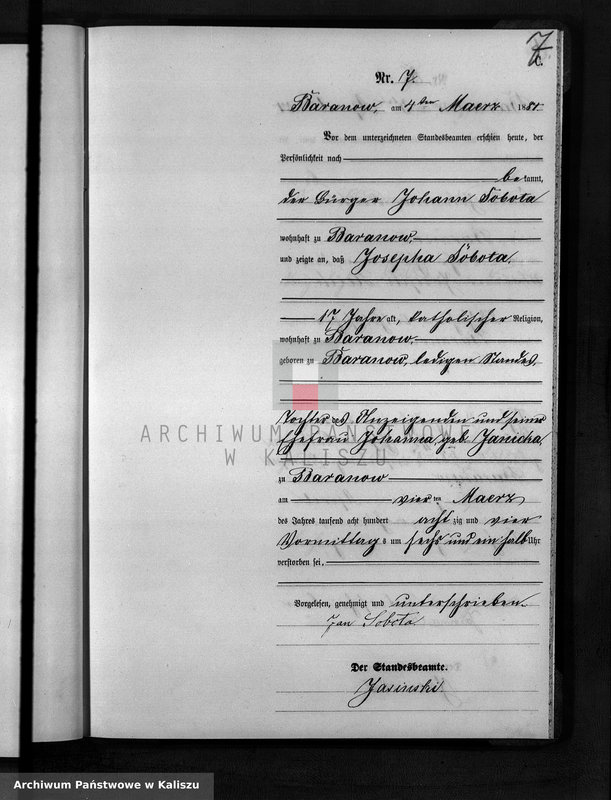 7
C.
Nr. 7.
Baranow, am 4ten Maerz 188
Vor dem unterzeichneten Standesbeamten erschien heute, der
Persönlichkeit nach
bekannt,
der Bürger Johann Sobota
wohnhaft zu Baranow,
und zeigte an, daß Josepha Sobota,
17 Jahre alt, katholischer Religion,
wohnhaft zu Baranow,
geboren zu Baranow, ledigen Standes,
Tochter des Anzeigenden und seiner
Ehefrau Johanna, geb. Janicka
zu Baranow
am vierten Maerz
des Jahres tausend acht hundert achtzig und vier
Vormittags um sechs und ein halb Uhr
verstorben sei.
Vorgelesen, genehmigt und unterschrieben
Jan Sobota
Der Standesbeamte.
Jasinski
ARCHIWUM PAŃSTWOWE
W KALISZU
Archiwum Państwowe w Kaliszu